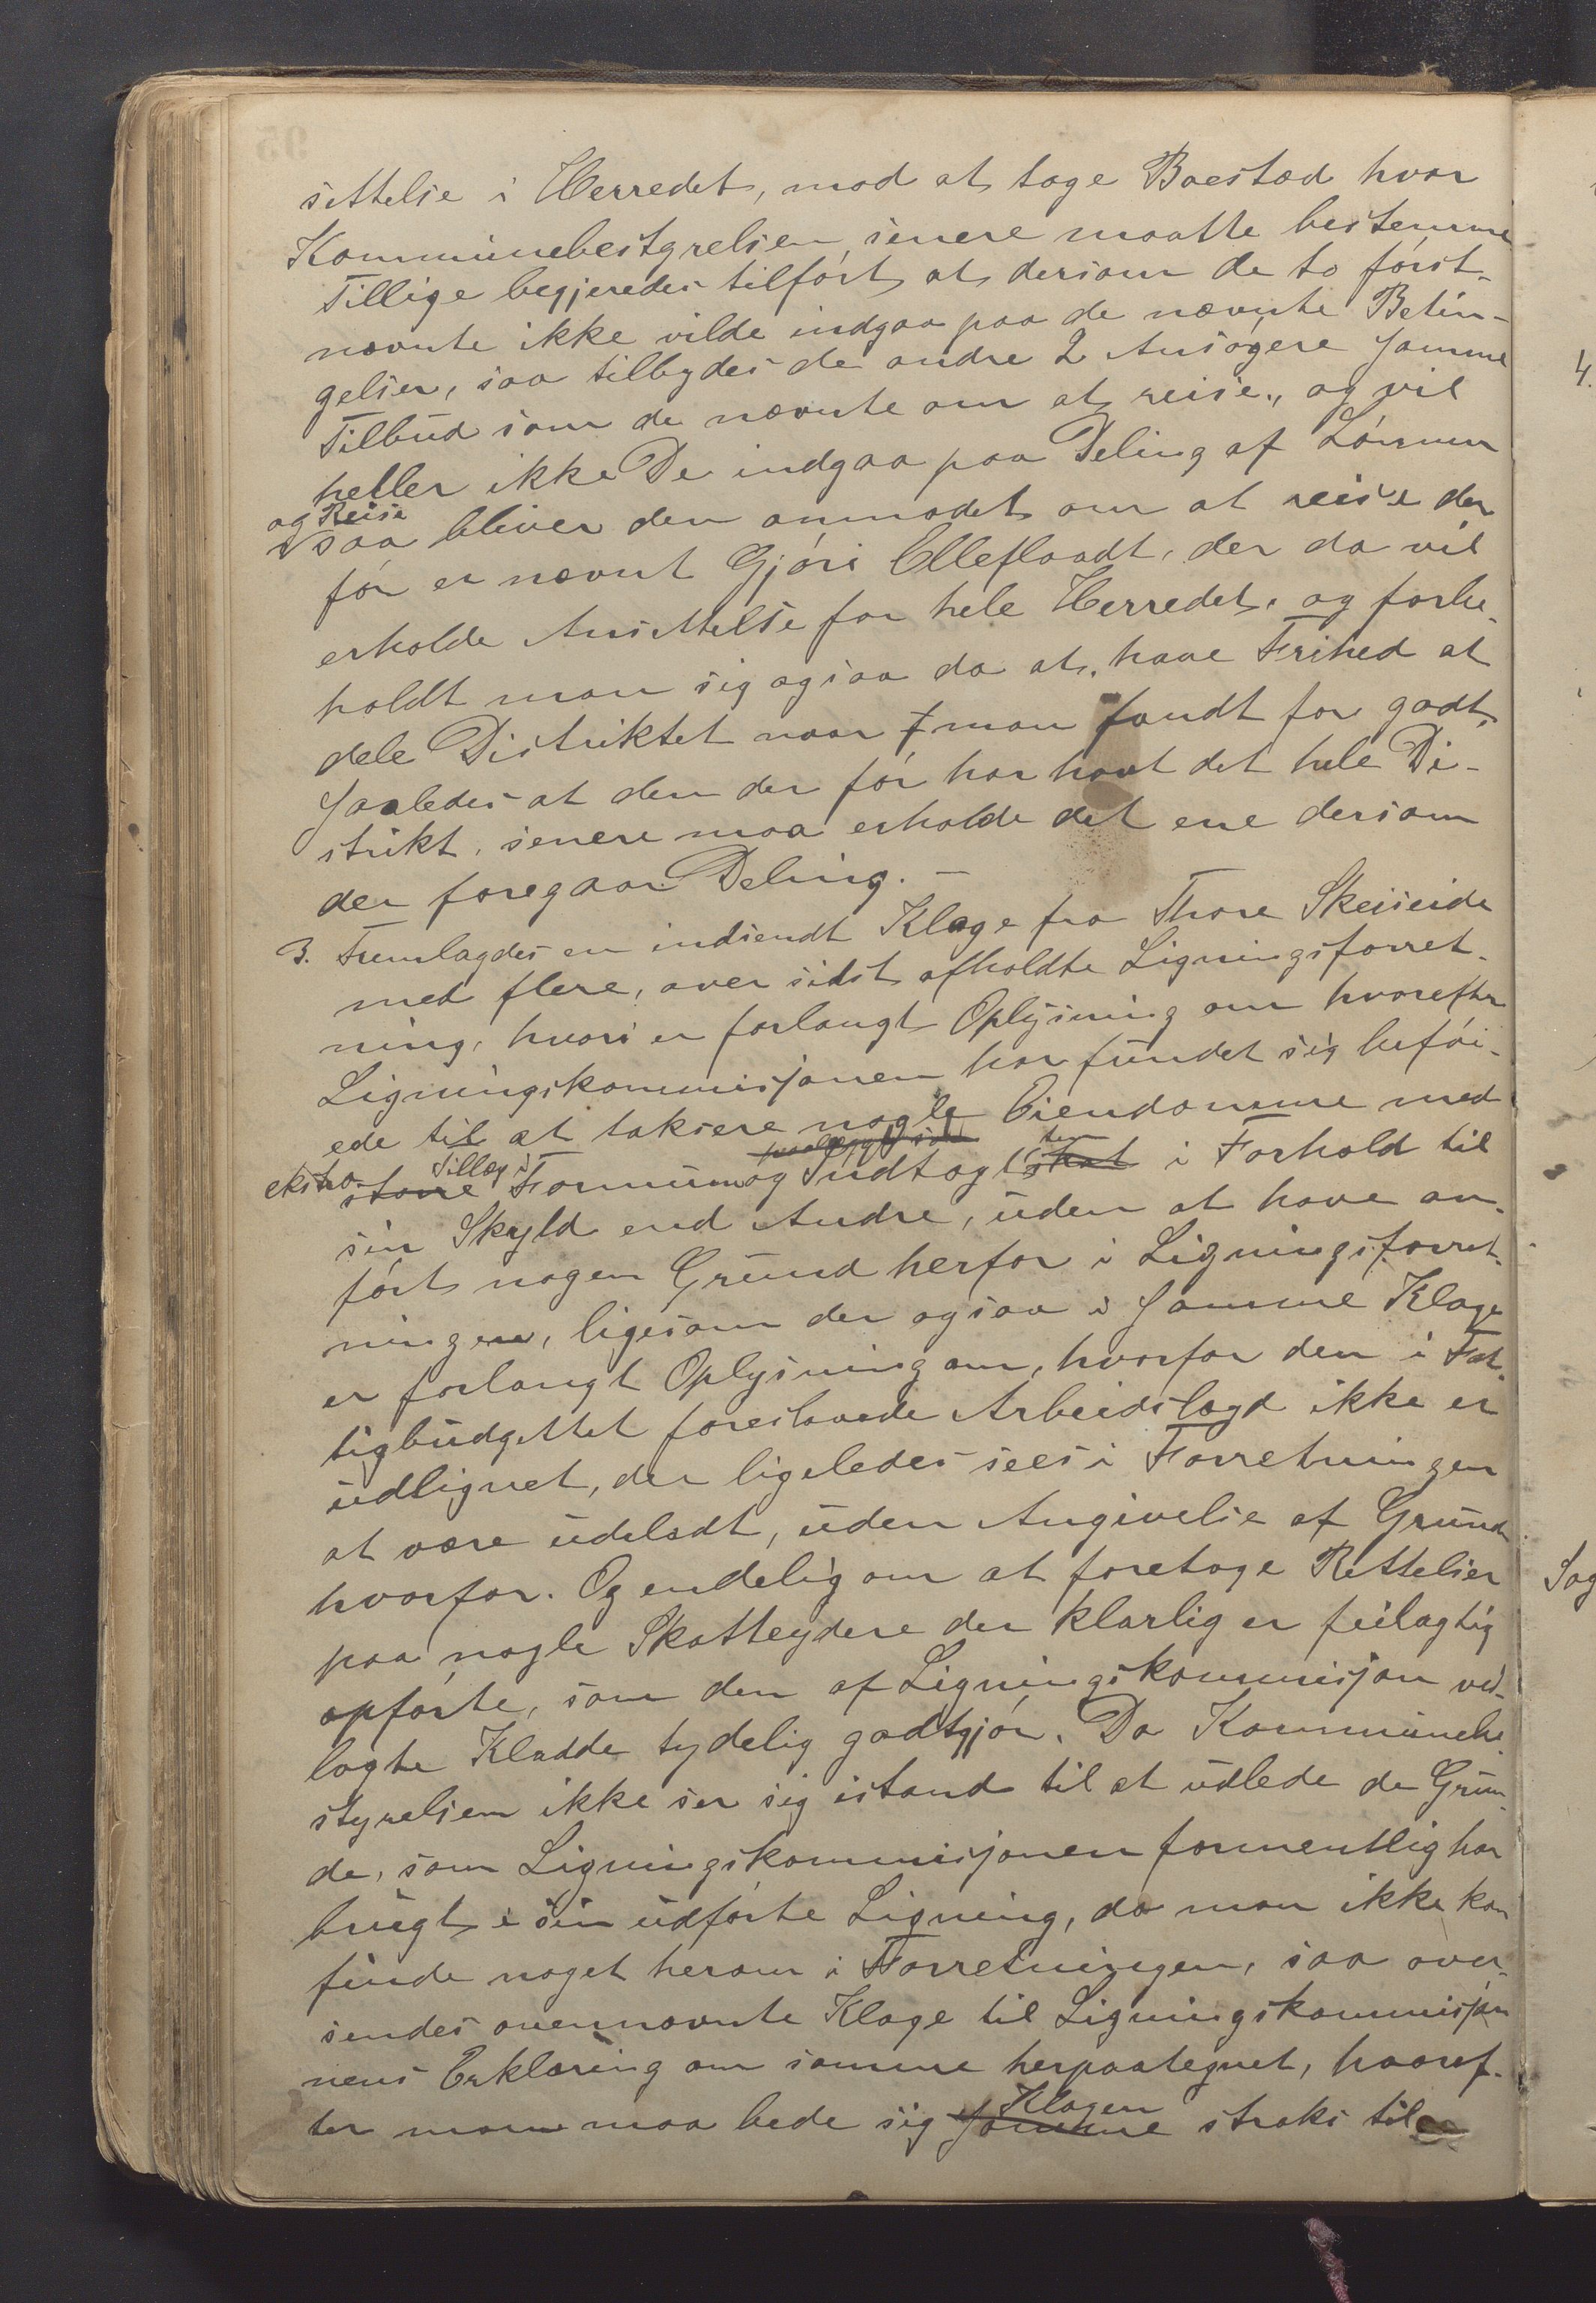 settelse i Herredet, mod at tage Boestad hvor
Kommunebestyrelsen senere maatte bestemme
Tillige begjeredes tilført at dersom de to først-
nævnte ikke vilde indgaa paa de nævnte Betin-
gelser, saa tilbydes de andre 2 Ansøgere samme
Tilbud som de nævnte om at reise, og vil
heller ikke De indgaa paa Deling af Lønnen
og Reise
saa bliver den anmodet om at reise der
før er nævnt Gjøri Elleflaadt, der da vil
erholde Ansettelse for hele Herredet, og forbe-
holdt man sig ogsaa da at have Frihed at
dele Distriktet naar man fandt for godt,
saaledes at den der før har havt det hele Di-
strikt, senere maa erholde det ene dersom
der foregaar Deling. -
3. Fremlagdes en indsendt Klage fra Thore Skeiseide
med flere, over sidst afholdte Ligningsforret-
ning, hvori er forlangt Oplysning om hvorefter
Ligningskommisjonen har fundet sig beføi-
ede til at taksere nogle Eiendomme med
ekstra Tillæg i
større Formue og Indtægt skat i Forhold til
sin Skyld end Andre, uden at have an-
ført nogen Grund herfor i Ligningsforret-
ningen, ligesom der ogsaa i samme Klage
er forlangt Oplysning om, hvorfor den i Fat-
tigbudgettet foreslaaede Arbeidslægd ikke er
udlignet, der ligeledes sees i Forretningen
at være udeladt, uden Angivelse af Grund
hvorfor. Og endelig om at foretage Rettelser
paa nogle Skatteydere der klarlig er feilagtig
opførte, som den af Ligningskommisjon ved-
lagte Kladde tydelig godtgjør. Da Kommunebe-
styrelsen ikke ser sig istand til at udlede de Grun-
de, som Ligningskommisjonen formentlig har
brugt i sin udførte Ligning, da man ikke kan
finde noget herom i Forretningen, saa over-
sendes ovennævnte Klage til Ligningskommisjo-
nens Erklæring om samme herpaategnet, hvoref-
Klagen
ter man maa bede sig samme straks til
4.
Sag